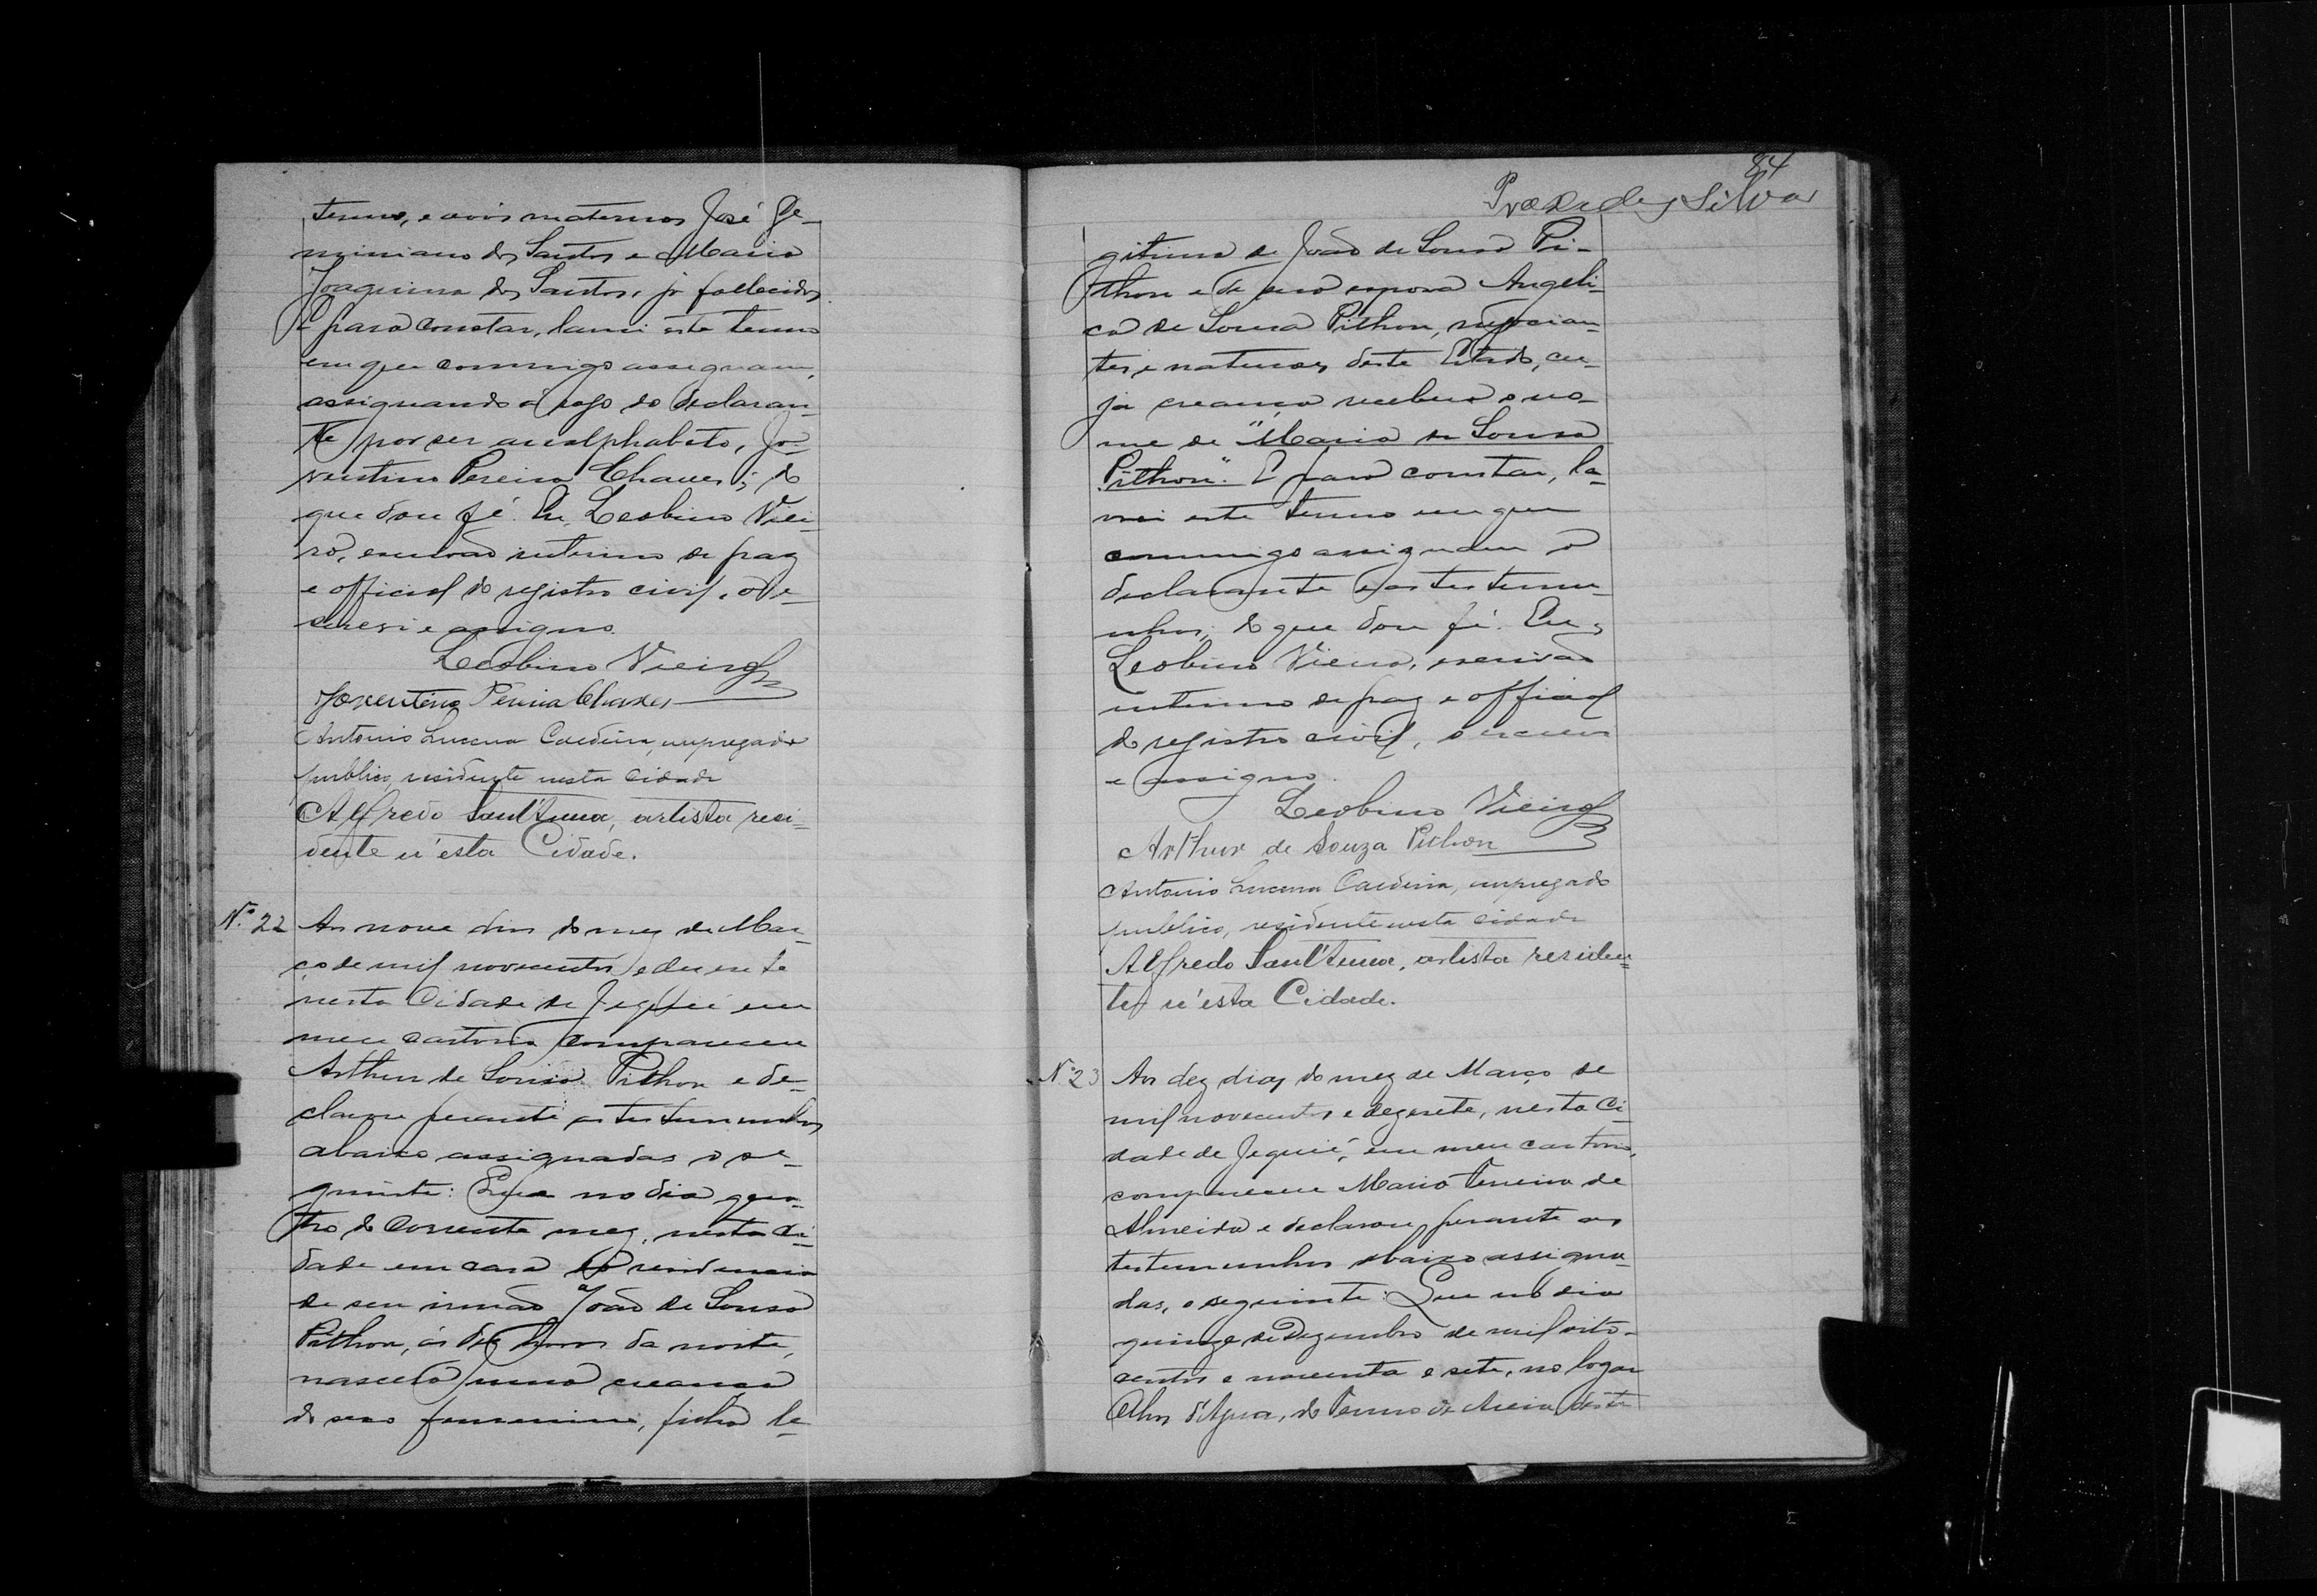 termo, e avós maternos José Ge-
miniano dos Santos e Maria
Joaquina dos Santos, já fallecidos.
E para constar, lavrei este termo
em que commigo assignam,
assignando a rogo do declaran-
te por ser analphabeto, Jo-
ventino Pereira Chaves; do
que dou fé. Eu, Leobino Viei-
ra, escrivão interino de paz
e official do registro civil, o es-
crevi e assigno.
Leobino Vieira
Joventino Pereira Chaves
Antonio Lucena Caldeira, empregado
publico, residente nesta cidade
Alfredo Sant'Anna, artista resi-
dente n'esta Cidade.
Nº 22 Aos nove dias do mez de Mar-
ço de mil novecentos e dezesete
nesta Cidade de Jequié em
meu cartorio compareceu
Arthur de Sousa Pithon e de-
clarou perante as testemunhas
abaixo assignadas o se-
guinte: Que no dia qua-
tro do corrente mez, nesta ci-
dade em casa de residencia
de seu irmão João de Sousa
Pithon, ás dez horas da noite,
nasceu uma creança
do sexo femenino, filha le-
84
Praxedes Silva
gitima de João de Sousa Pi-
thon e de sua esposa Angeli-
ca de Sousa Pithon, negocian-
tes, e naturaes deste Estado, cu-
ja creança recebeu o no-
me de "Maria de Sousa
Pithon". E para constar, la-
vrei este termo em que
commigo assignam o
declarante e as testemu-
nhas; do que dou fé. Eu,
Leobino Vieira, escrivão
interino de paz e official
do registro civil, o escrevi
e assigno.
Leobino Vieira
Arthur de Souza Pithon
Antonio Lucena Caldeira, empregado
publico, residente nesta cidade
Alfredo Sant'Anna, artista residen-
te n'esta Cidade.
Nº 23 Aos dez dias do mez de Março de
mil novecentos e dezesete, nesta Ci-
dade de Jequié, em meu cartorio,
compareceu Mario Ferreira de
Almeida e declarou perante as
testemunhas abaixo assigna-
das, o seguinte: Que no dia
quinze de Dezembro de mil oito-
centos e noventa e sete, no logar
Olhos d'Agua, do Termo de Areia deste